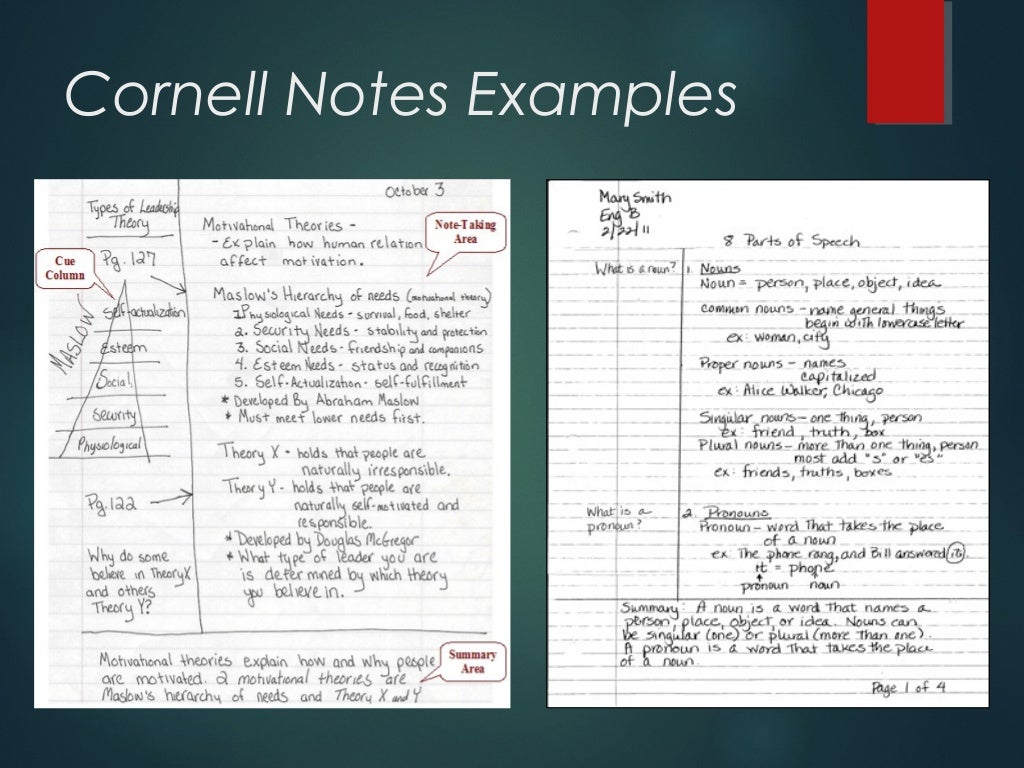 Cornell Notes Examples
October 3
Types of Leadership
Theory
Pg. 127
Cue
Column
MASLOW
Self-actualization
Esteem
Social
Security
Physiological
Pg. 122
Why do some
believe in Theory X
and others
Theory Y?
Note-Taking
Area
Motivational Theories -
- Explain how human relation
affect motivation.
Maslow's Hierarchy of needs (motivational theory)
1. Physological Needs - survival, food, shelter
2. Security Needs - stability and protection
3. Social Needs - friendship and companions
4. Esteem Needs - status and recognition
5. Self-Actualization - self-fulfillment
* Developed By Abraham Maslow
* Must meet lower needs first.
Theory X - holds that people are
naturally irresponsible.
Theory Y - holds that people are
naturally self-motivated and
responsible.
* Developed by Douglas McGregor
* What type of leader you are
is determined by which theory
you believe in.
Summary
Area
Motivational theories explain how and why people
are motivated. 2 motivational theories are
Maslow's hierarchy of needs and Theory X and Y
Mary Smith
Eng B
2/22/11
8 Parts of Speech
What is a noun?
1. Nouns
Noun = person, place, object, idea
common nouns - name general things
begin with lowercase letter
ex: woman, city
Proper nouns - names
capitalized
ex: Alice Walker, Chicago
Singular nouns - one thing, person
ex: friend, truth, box
Plural nouns - more than one thing, person
most add "s" or "es"
ex: friends, truths, boxes
What is a
pronoun?
2. Pronouns
Pronoun - word that takes the place
of a noun
ex: The phone rang, and Bill answered it.
it = phone
pronoun noun
Summary: A noun is a word that names a
person, place, object, or idea. Nouns can
be singular (one) or plural (more than one).
A pronoun is a word that takes the place
of a noun.
Page 1 of 4